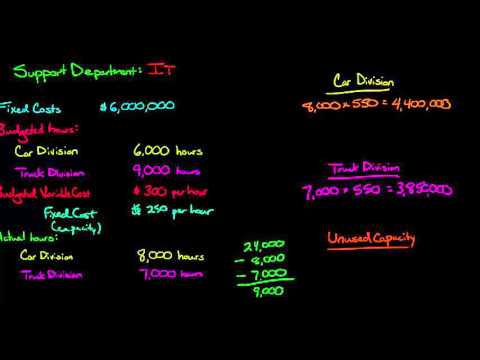 Support Department: IT
Fixed Costs $6,000,000
Budgeted hours:
Car Division 6,000 hours
Truck Division 9,000 hours
Budgeted Variable Cost $300 per hour
Fixed Cost $250 per hour
(capacity)
Actual hours:
Car Division 8,000 hours
Truck Division 7,000 hours
24,000
- 8,000
- 7,000
9,000
Car Division
8,000 x 550 = 4,400,000
Truck Division
7,000 x 550 = 3,850,000
Unused Capacity